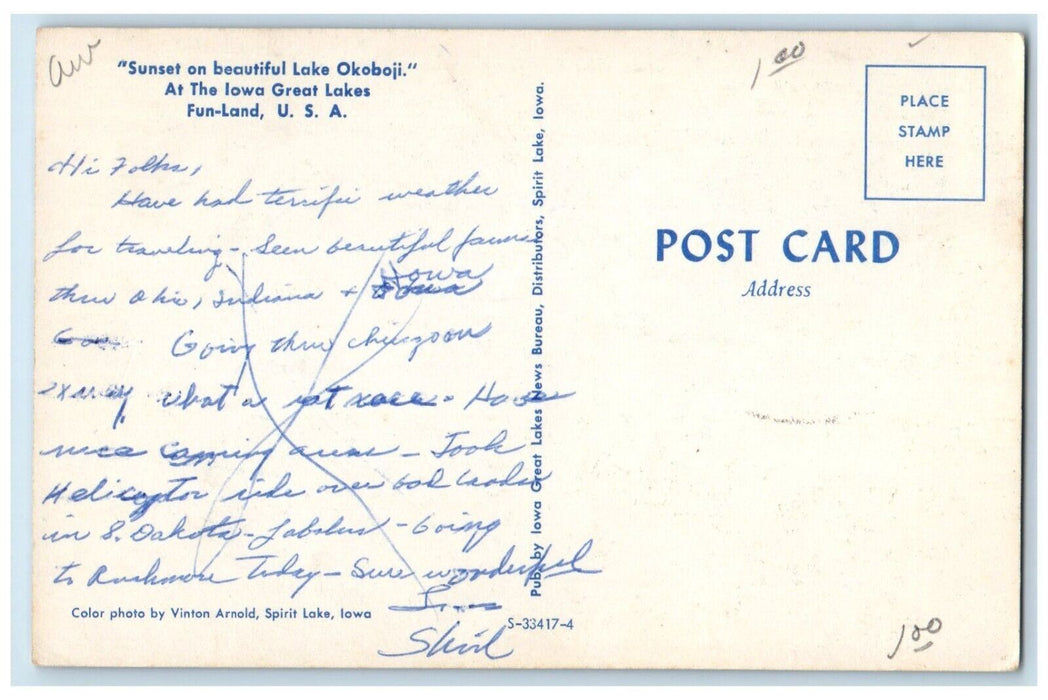 aw
1 00
"Sunset on beautiful Lake Okoboji."
At The Iowa Great Lakes
Fun-Land, U. S. A.
Hi Folks,
Have had terrific weather
for traveling - Seen beautiful farms
Iowa
thru Ohio, Indiana + Iowa
Going thru
what a rat race - Have
nice camping areas - Took
Helicoptor ride over bad lands
in S. Dakota - Fabulus - Going
to Rushmore Today - Sure wonderful
Shirl
Color photo by Vinton Arnold, Spirit Lake, Iowa
S-33417-4
Pub. by Iowa Great Lakes News Bureau, Distributors, Spirit Lake, Iowa.
PLACE
STAMP
HERE
POST CARD
Address
1 00